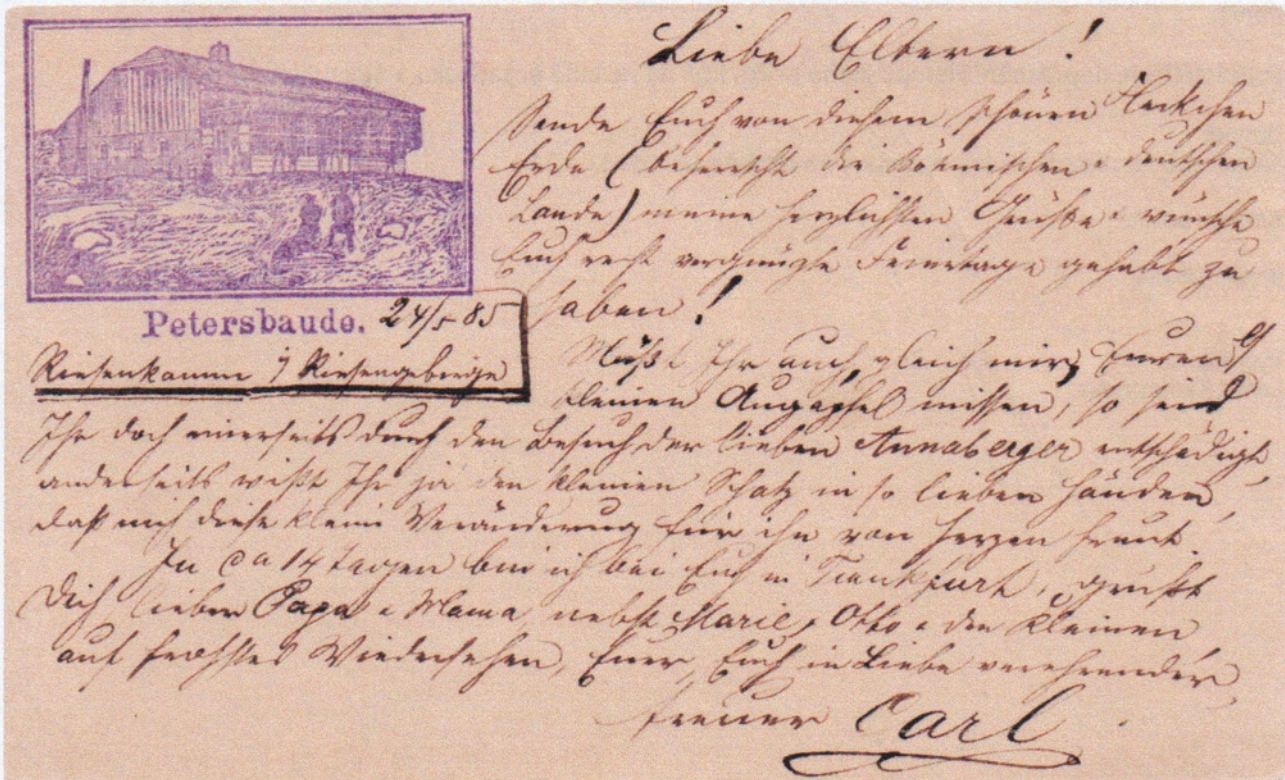 Liebe Eltern!
Sende Euch von diesem schönen Fleckchen
Erde (beherrscht die Böhmischen & deutschen
Lande) meine herzlichsten Grüße & wünsche
Euch recht vergnügte Feiertage gehabt zu
haben!
Petersbaude. 24/5 85
Riesenkamm i/ Riesengebirge
Müßt Ihr auch, gleich mir, Euren
kleinen Augapfel missen, so seid
Ihr doch einerseits durch den Besuch der lieben Annaberger entschädigt,
anderseits wißt Ihr ja den kleinen Schatz in so lieben Händen,
daß mich diese kleine Veränderung für ihn von Herzen freut.
In ca 14 Tagen bin ich bei Euch in Frankfurt, grüßt
Dich lieber Papa & Mama nebst Marie, Otto & den Kleinen
auf frohstes Wiedersehen, Euer, Euch in Liebe verehrender,
treuer Carl